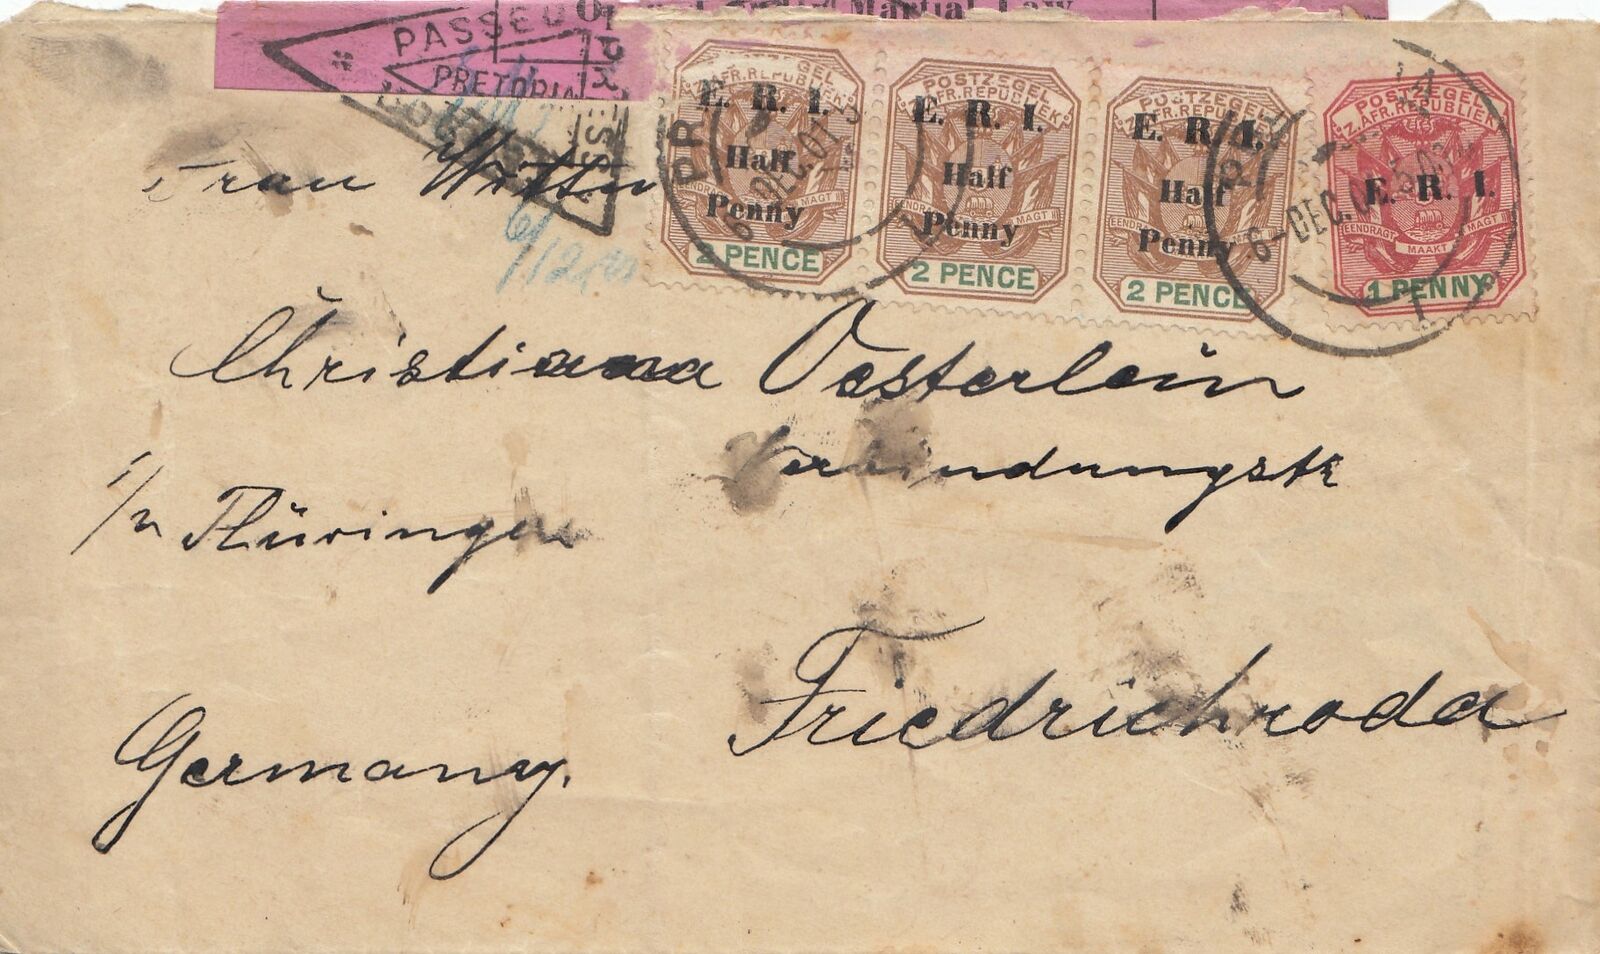 Opened Under Martial Law
PASSED
PRESS
PRETORIA
POSTZEGEL
Z. AFR. REPUBLIEK
E. R. I.
Half
Penny
EENDRAGT MAAKT MAGT
2 PENCE
POSTZEGEL
Z. AFR. REPUBLIEK
E. R. I.
Half
Penny
EENDRAGT MAAKT MAGT
2 PENCE
POSTZEGEL
Z. AFR. REPUBLIEK
E. R. I.
Half
Penny
EENDRAGT MAAKT MAGT
2 PENCE
POSTZEGEL
Z. AFR. REPUBLIEK
E. R. I.
EENDRAGT MAAKT MAGT
1 PENNY
6 DEC. 01
6 - DEC. 0
6/12/01
Frau Wittw
Christiana Oesterlein
Verbindungstr
i/n Thüringen
Friedrichroda
Germany.